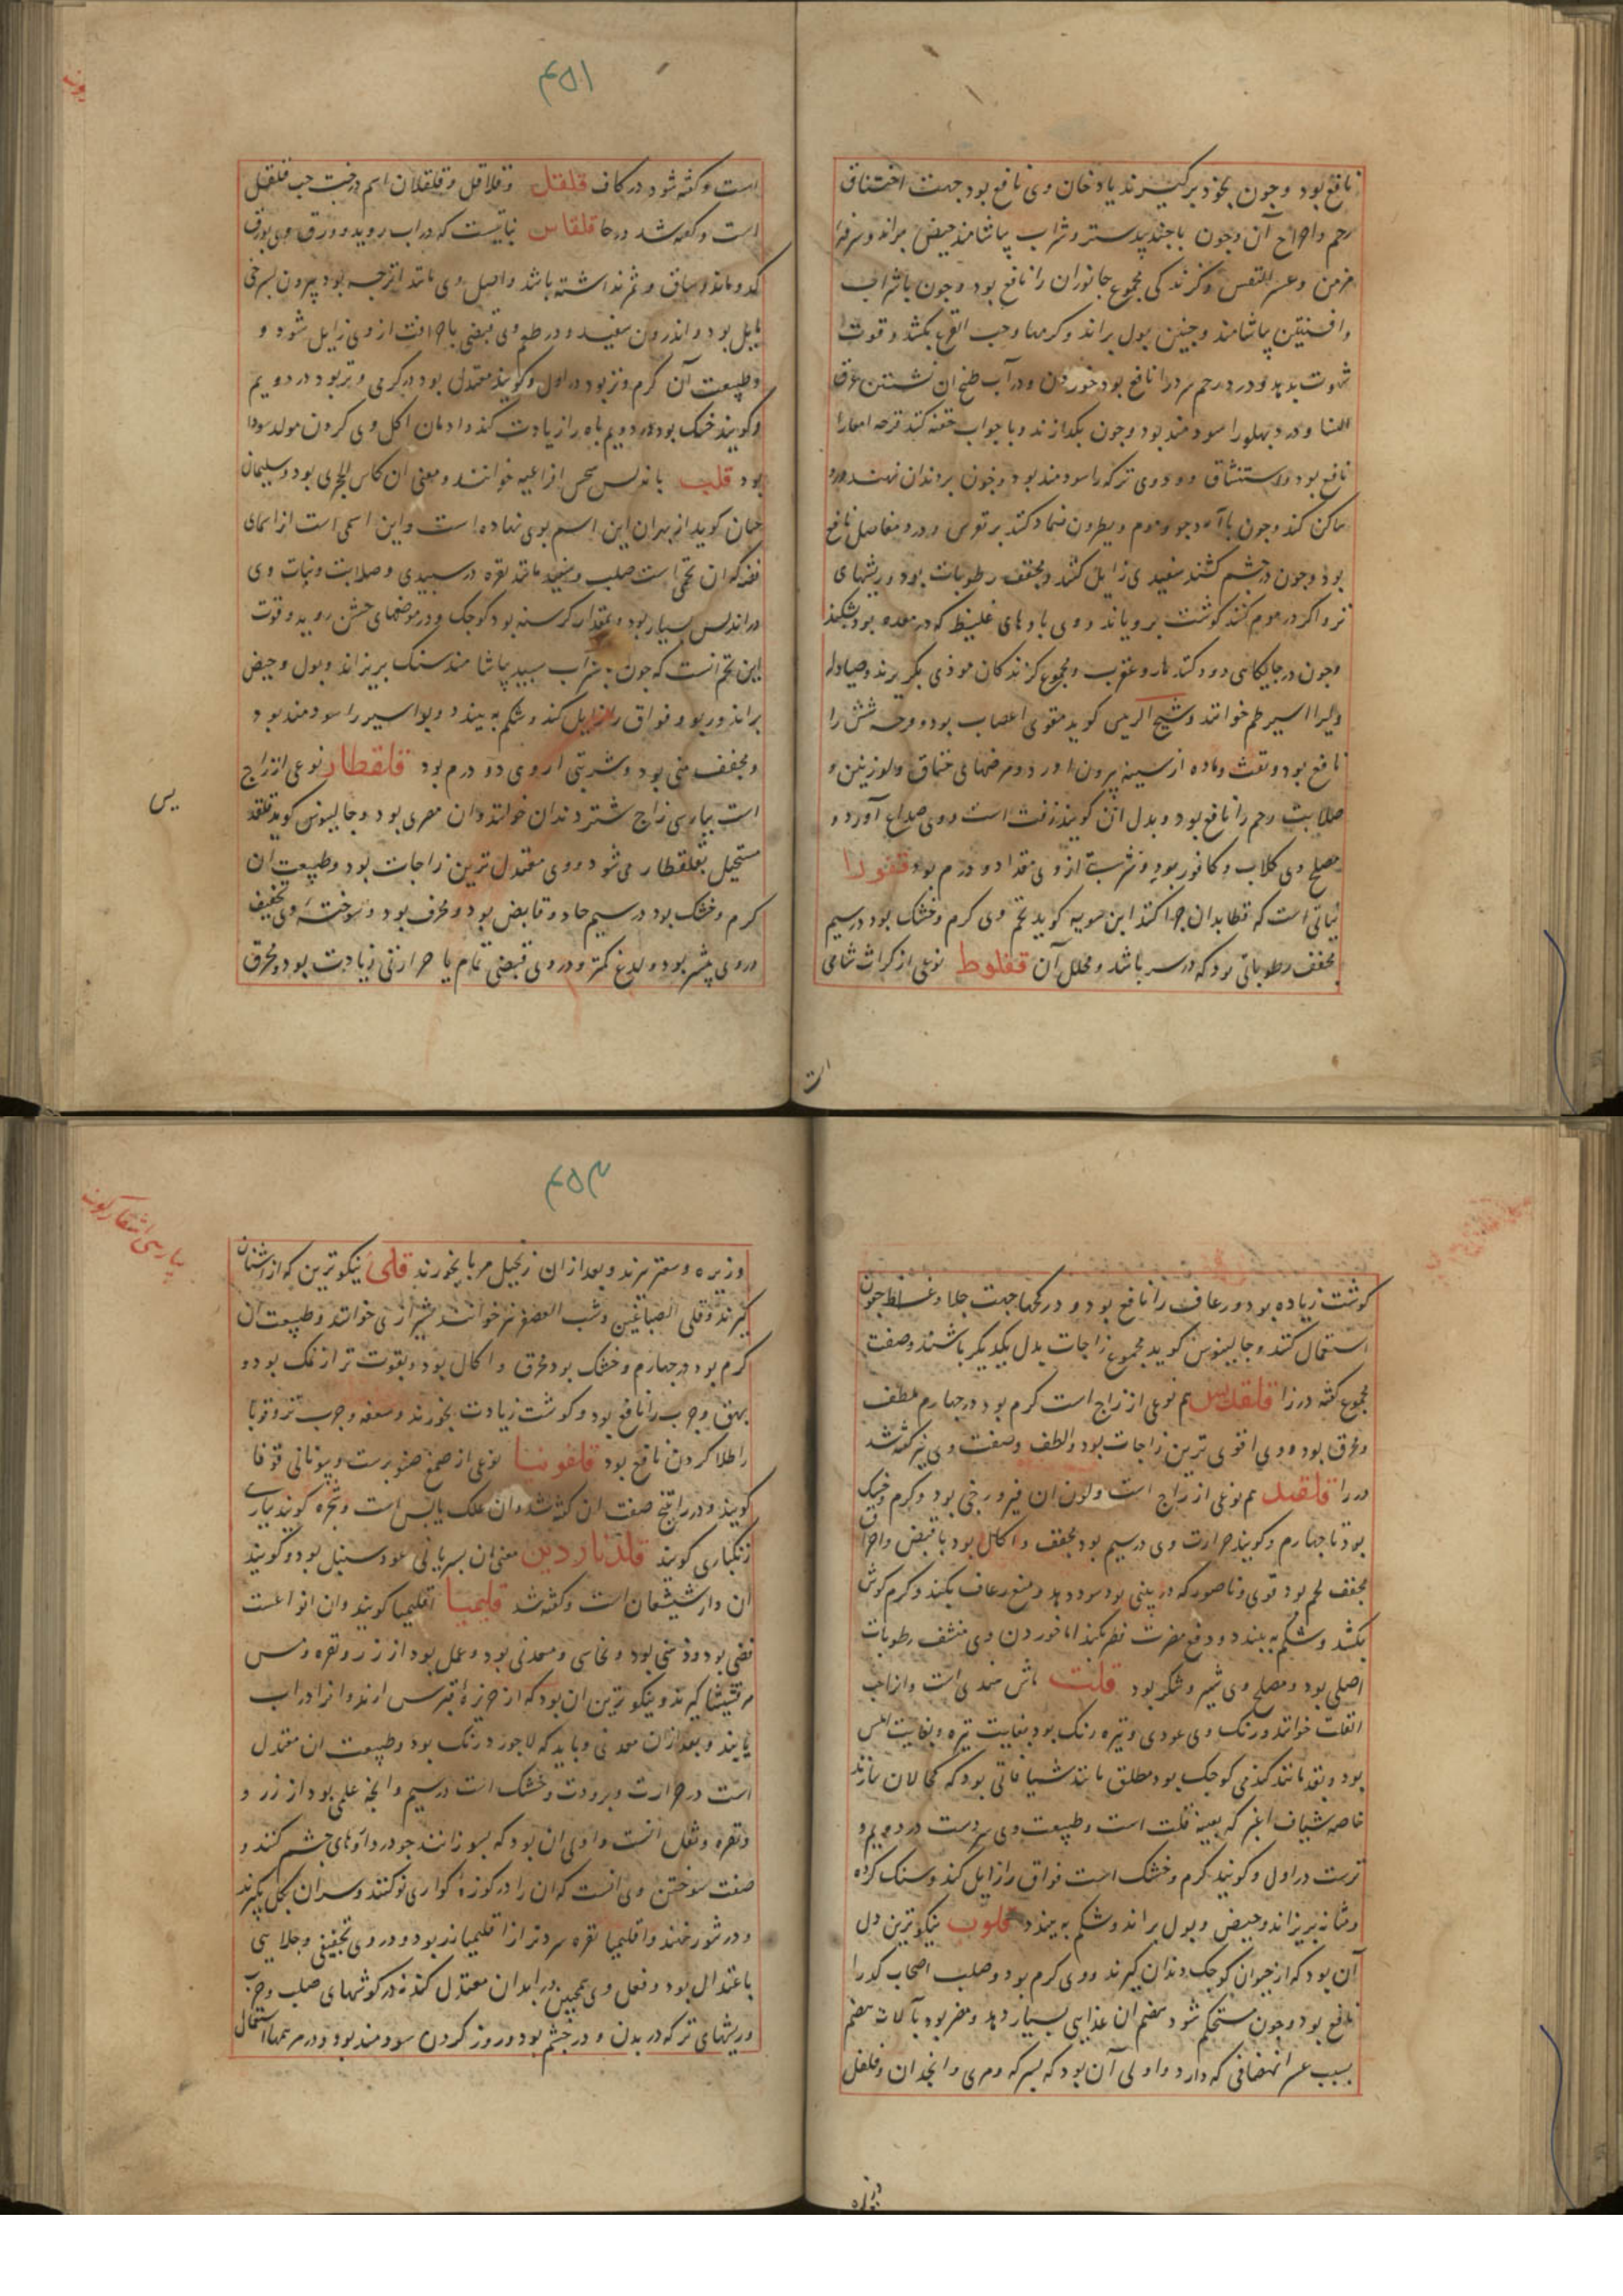 نافع بود و چون بخود برگیرند یا دخان وی نافع بود جهت اختناق
رحم و اوجاع آن و چون با جندبیدستر و شراب بیاشامند حیض براند و سرفه
مزمن و عسر النفس و گزندگی مجموع جانوران را نافع بود و چون با شراب
و افسنتین بیاشامند و جنین بول براند و کرمها و حب القرع بکشد و قوت
شهوت بدهد و درد رحم سرد را نافع بود خوردن و در آب طبخ ان نشستن عرق
النسا و درد پهلو را سودمند بود و چون بگدازند و با جواب حقنه کنند قرحه امعا را
نافع بود و استنشاق دود وی ترکه را سودمند بود و چون بر دندان نهند درد
ساکن کند و چون با آرد جو و موم و بطرون ضماد کنند بر نقرس و درد مفاصل نافع
بود و چون در چشم کشند سفیدی زایل کند و مجفف رطوبات بود و ریشهای
تر و اگر در موم کنند گوشت برویاند و وی بادهای غلیظ که در معده بود بشکند
و چون در جایگاهی دود کنند مار و عقرب و مجموع گزندکان موذی بگریزند و صیادله
ویرا اسیر طم خوانند و شیخ الرییس کوید مقوی اعصاب بود و وجه شش را
نافع بود و نفث و ماده از سینه بیرون اورد و مرضهای خناق و لوزتین و
صلابت رحم را نافع بود و بدل ان کویند زفت است و وی صداع آورد و
مصلح وی کلاب و کافور بود و شربت از وی مقدار دو درم بود قفورا
نباتی است که قطا بدان چرا کند ابن سویه کوید تخم وی کرم و خشک بود در سیم
مجفف رطوباتی بود که در سر باشد و محلل آن قفلوط نوعی از کراث شامی
ات
۴۵۱
است و کفته شود در کاف قلقل و قلاقل و قلقلان اسم درخت حب قلقل
است و کفته شد در حا قلقاس نباتیست که در اب روید و ورق وی بورق
کدو ماند و ساق و ثمر نداشته باشد و اصل وی مانند اترجه بود بیرون بسرخی
مایل بود و اندرون سفید و در طعم وی قبضی با حرافت از وی زایل شود و
و طبیعت آن کرم و تر بود در اول و کویند معتدل بود در کرمی و تر بود در دویم
و کویند خشک بود در دویم باه را زیادت کند و ادمان اکل وی کردن مولد سودا
بود قلب باندلس افراعیه خوانند و معنی ان کاس الحجری بود و سلیمان
حسان کوید از بهر ان این اسم بوی نهاده است و این اسمی است از اسمای
فضه که ان تخمی است صلب و سفید مانند نقره در سپیدی و صلابت و نبات وی
در اندلس بسیار بود و بمقدار کرسنه بود کوچک و در موضعهای خشن روید و قوت
این تخم انست که چون بشراب سپید بیاشامند سنک بریزاند و بول و حیض
براند و ربو و فواق را زایل کند و شکم به بیندد و بواسیر را سودمند بود
و مجفف منی بود و شربتی از وی دو درم بود قلقطار نوعی از زاج
است بپارسی زاج شتر دندان خوانند و ان مصری بود و جالینوس کوید قلقند
مستحیل بقلقطار می شود و وی معتدل ترین زاجات بود و طبیعت ان
کرم و خشک بود در سیم حاد و قابض بود و محرق بود و سوختهٔ وی تجفیف
در وی بیشتر بود و لدغ کمتر و در وی قبضی تمام با حرارتی زیادت بود و محرق
یس
گوشت زیاده بود و رعاف را نافع بود و در کحلها جهت جلا و غلظ جفون
استعمال کنند و جالینوس کوید مجموع زاجات بدل یکدیکر باشند و صفت
مجموع کفته در زا قلقدیس هم نوعی از زاج است کرم بود در چهارم ملطف
و محرق بود و وی اقوی ترین زاجات بود و الطف و صفت وی نیز کفته شد
در را قلقند هم نوعی از زاج است و لون ان فیروزجی بود و کرم و خشک
بود تا چهارم و کویند حرارت وی در سیم بود مجفف و اکال بود با قبض و احراق
مجفف لحم بود قوی و ناصور که در بینی بود سود دهد و منع رعاف بکند و کرم کوش
بکشد و شکم به بیندد و دفع مضرت فطر بکند اما خوردن وی منشف رطوبات
اصلی بود و مصلح وی شیر و شکر بود قلت ماش هندی است و از احب
القلت خوانند و رنک وی عودی و تیره رنک بود بغایت تیره و بغایت املس
بود و بقد مانند کندمی کوچک بود مطلق مانند شیافاتی بود که کحالان سازند
خاصه شیاف اغبر که بعینه قلت است و طبیعت وی سردست در دویم و
ترست در اول و کویند کرم و خشک است فواق را زایل کند و سنک کرده
و مثانه بریزاند و حیض و بول براند و شکم به بیندد قلوب نیکوترین دل
آن بود که از حیوان کوچک دندان کیرند و وی کرم بود و صلب اصحاب کد را
نافع بود و چون مستحکم شود هضم ان غذایی بسیار دهد و مضر بود بآلات هضم
بسبب عسر انهضامی که دارد و اولی آن بود که بسرکه و مری و انجدان و فلفل
وزیره
۴۵۲
بپارسی اشقار کویند
و زیره و سعتر پزند و بعد از ان زنجبیل مربا بخورند قلی نیکوترین که از اشنان
کیرند و قلی الصباغین و شب العصفر نیز خوانند بشیرازی خوانند و طبیعت ان
کرم بود در چهارم و خشک بود محرق و اکال بود و بقوت تر از نمک بود و
بهق و جرب را نافع بود و گوشت زیادت بخورند و سعفه و جرب تر و قوبا
را طلا کردن نافع بود قلفونیا نوعی از صمغ صنوبرست و بیونانی قوفا
کویند و در راتینج صفت ان کفته شد و ان علک یابس است و شجره کویند بپارسی
زنکباری کویند قلدناردین معنی ان بسریانی عود سنبل بود و کویند
ان دارشیشعان است و کفته شد قلیمیا اقلیمیا کویند و ان انواعست
فضی بود و ذهبی بود و نحاسی و معدنی بود و عمل بود از زر و نقره و مس
مرقشیشا کیرند و نیکوترین ان بود که از جزیرهٔ قبرس ارند و انرا در اب
یابند و بعد از ان معدنی و باید که لاجورد رنک بود و طبیعت ان معتدل
است در حرارت و برودت و خشک است در سیم و انچه عملی بود از زر و
و نقره و ثقل انست و اولی ان بود که بسوزانند چو در داروهای چشم کنند و
صفت سوختن وی انست که ان را در کوزهٔ کواری نو کنند و سر ان بکل بکیرند
و در تنور نهند و اقلیمیا نقره سردتر از اقلیمیا زر بود و در وی تجفیفی و جلایی
باعتدال بود و فعل وی همچنین در ابدان معتدل کند نه در گوشتهای صلب و جرب
و ریشهای تر که در بدن و در چشم بود و روز کردن سودمند بود و در مرهمها استعمال